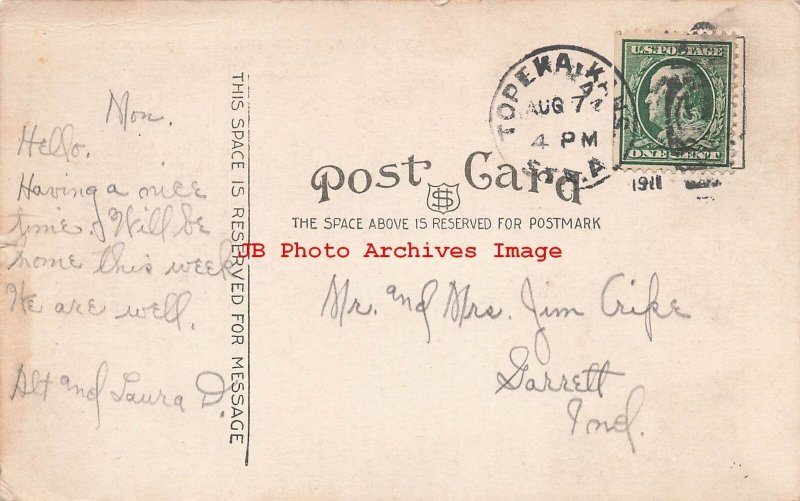 Mon.
Hello.
Having a nice
time. Will be
home this week
We are well.
Alt and Laura D.
THIS SPACE IS RESERVED FOR MESSAGE
TOPEKA, KANS.
AUG 7
4 PM
STA. A.
1911
U.S. POSTAGE
ONE CENT
Post Card
THE SPACE ABOVE IS RESERVED FOR POSTMARK
JB Photo Archives Image
Mr. and Mrs. Jim Cripe
Garrett
Ind.